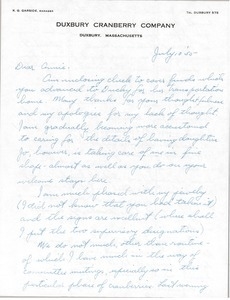 R. B. GARSIDE, MANAGER
TEL. DUXBURY 570
DUXBURY CRANBERRY COMPANY
DUXBURY, MASSACHUSETTS
July 10 '55
Dear Annie:
Am enclosing check to cover funds which
you advanced to for transportation
home. Many thanks for your thoughtfulness
and my apologies for my lack of thought.
I am gradually becoming more accustomed
to caring for the details of
he, however, is taking care of me in fine
shape - almost as well as you do on your
welcome stays here.
I am much pleased with my jewelry
(I did not know that you had taken it)
and the signs are excellent (where shall
I put the two supervisory designations)
We do not much other than routine
of which I have much in the way of
committee meetings, especially as in this
particular phase of cranberries